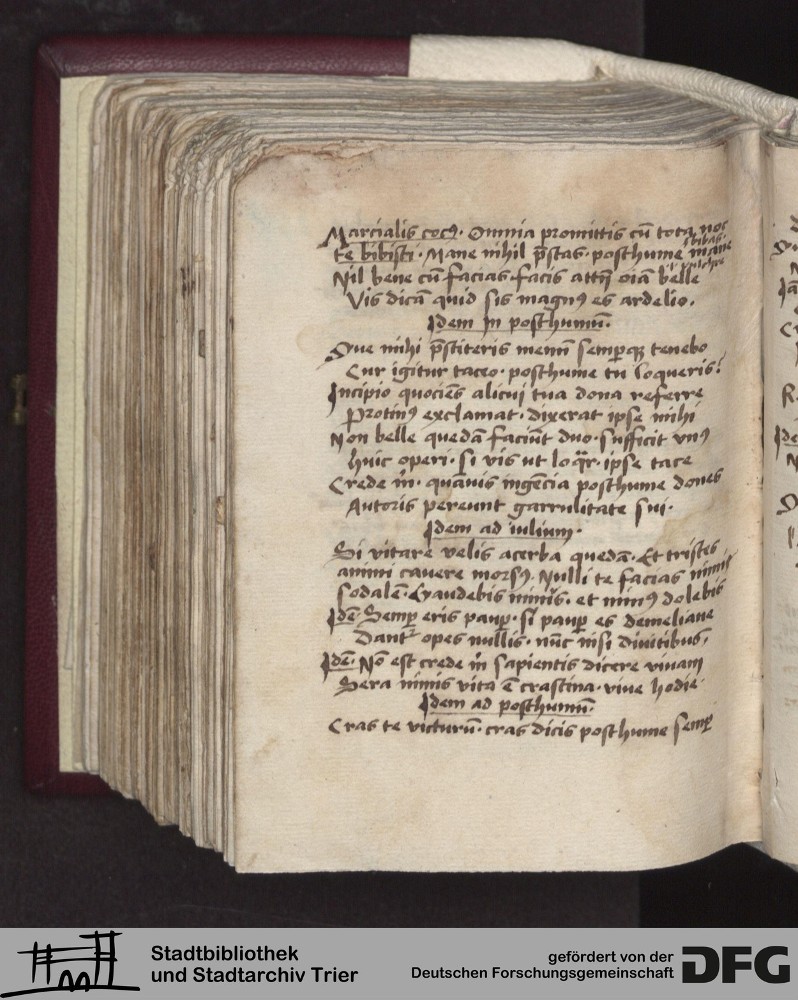 Marcialis cocꝰ. Omnia promittis cū tota nocte bibisti
te bibisti. Mane nihil p̄stas. posthume mane bibas
Nil bene cū facias. facis attñ oīa belle
Vis dicā quid sis magnꝰ es ardelio.
Idem In posthumū.
Que mihi p̄stiteris memī semperqꝫ tenebo
Cur igitur taceo. posthume tu loqueris?
Incipio quociēs alicuj tua dona referre
Protinꝰ exclamat. dixerat ipse mihi
Non belle quedā faciūt duo. sufficit vnꝰ
huic operi. si vis ut loqr̄. ipse tace
Crede m̄. quāuis ingēcia posthume dones
Autoris pereunt garrulitate sui.
Idem ad iulium.
Si vitare velis acerba quedā. Et tristes
animi cauere morsꝰ. Nulli te facias nimis
sodalē. Gaudebis minꝰ. et minꝰ dolebis
Idē. Semp̄ eris paup̄. si paup̄ es Aemeliane
Dantᷣ opes nullis. nūc nisi diuitibus.
Idē. Nō est crede m̄ sapientis dicere viuam
Sera nimis vita ē crastina. viue hodie.
Idem ad posthumū.
Cras te victurū. cras dicis posthume semp̄
Stadtbibliothek
und Stadtarchiv Trier
gefördert von der
Deutschen Forschungsgemeinschaft
DFG